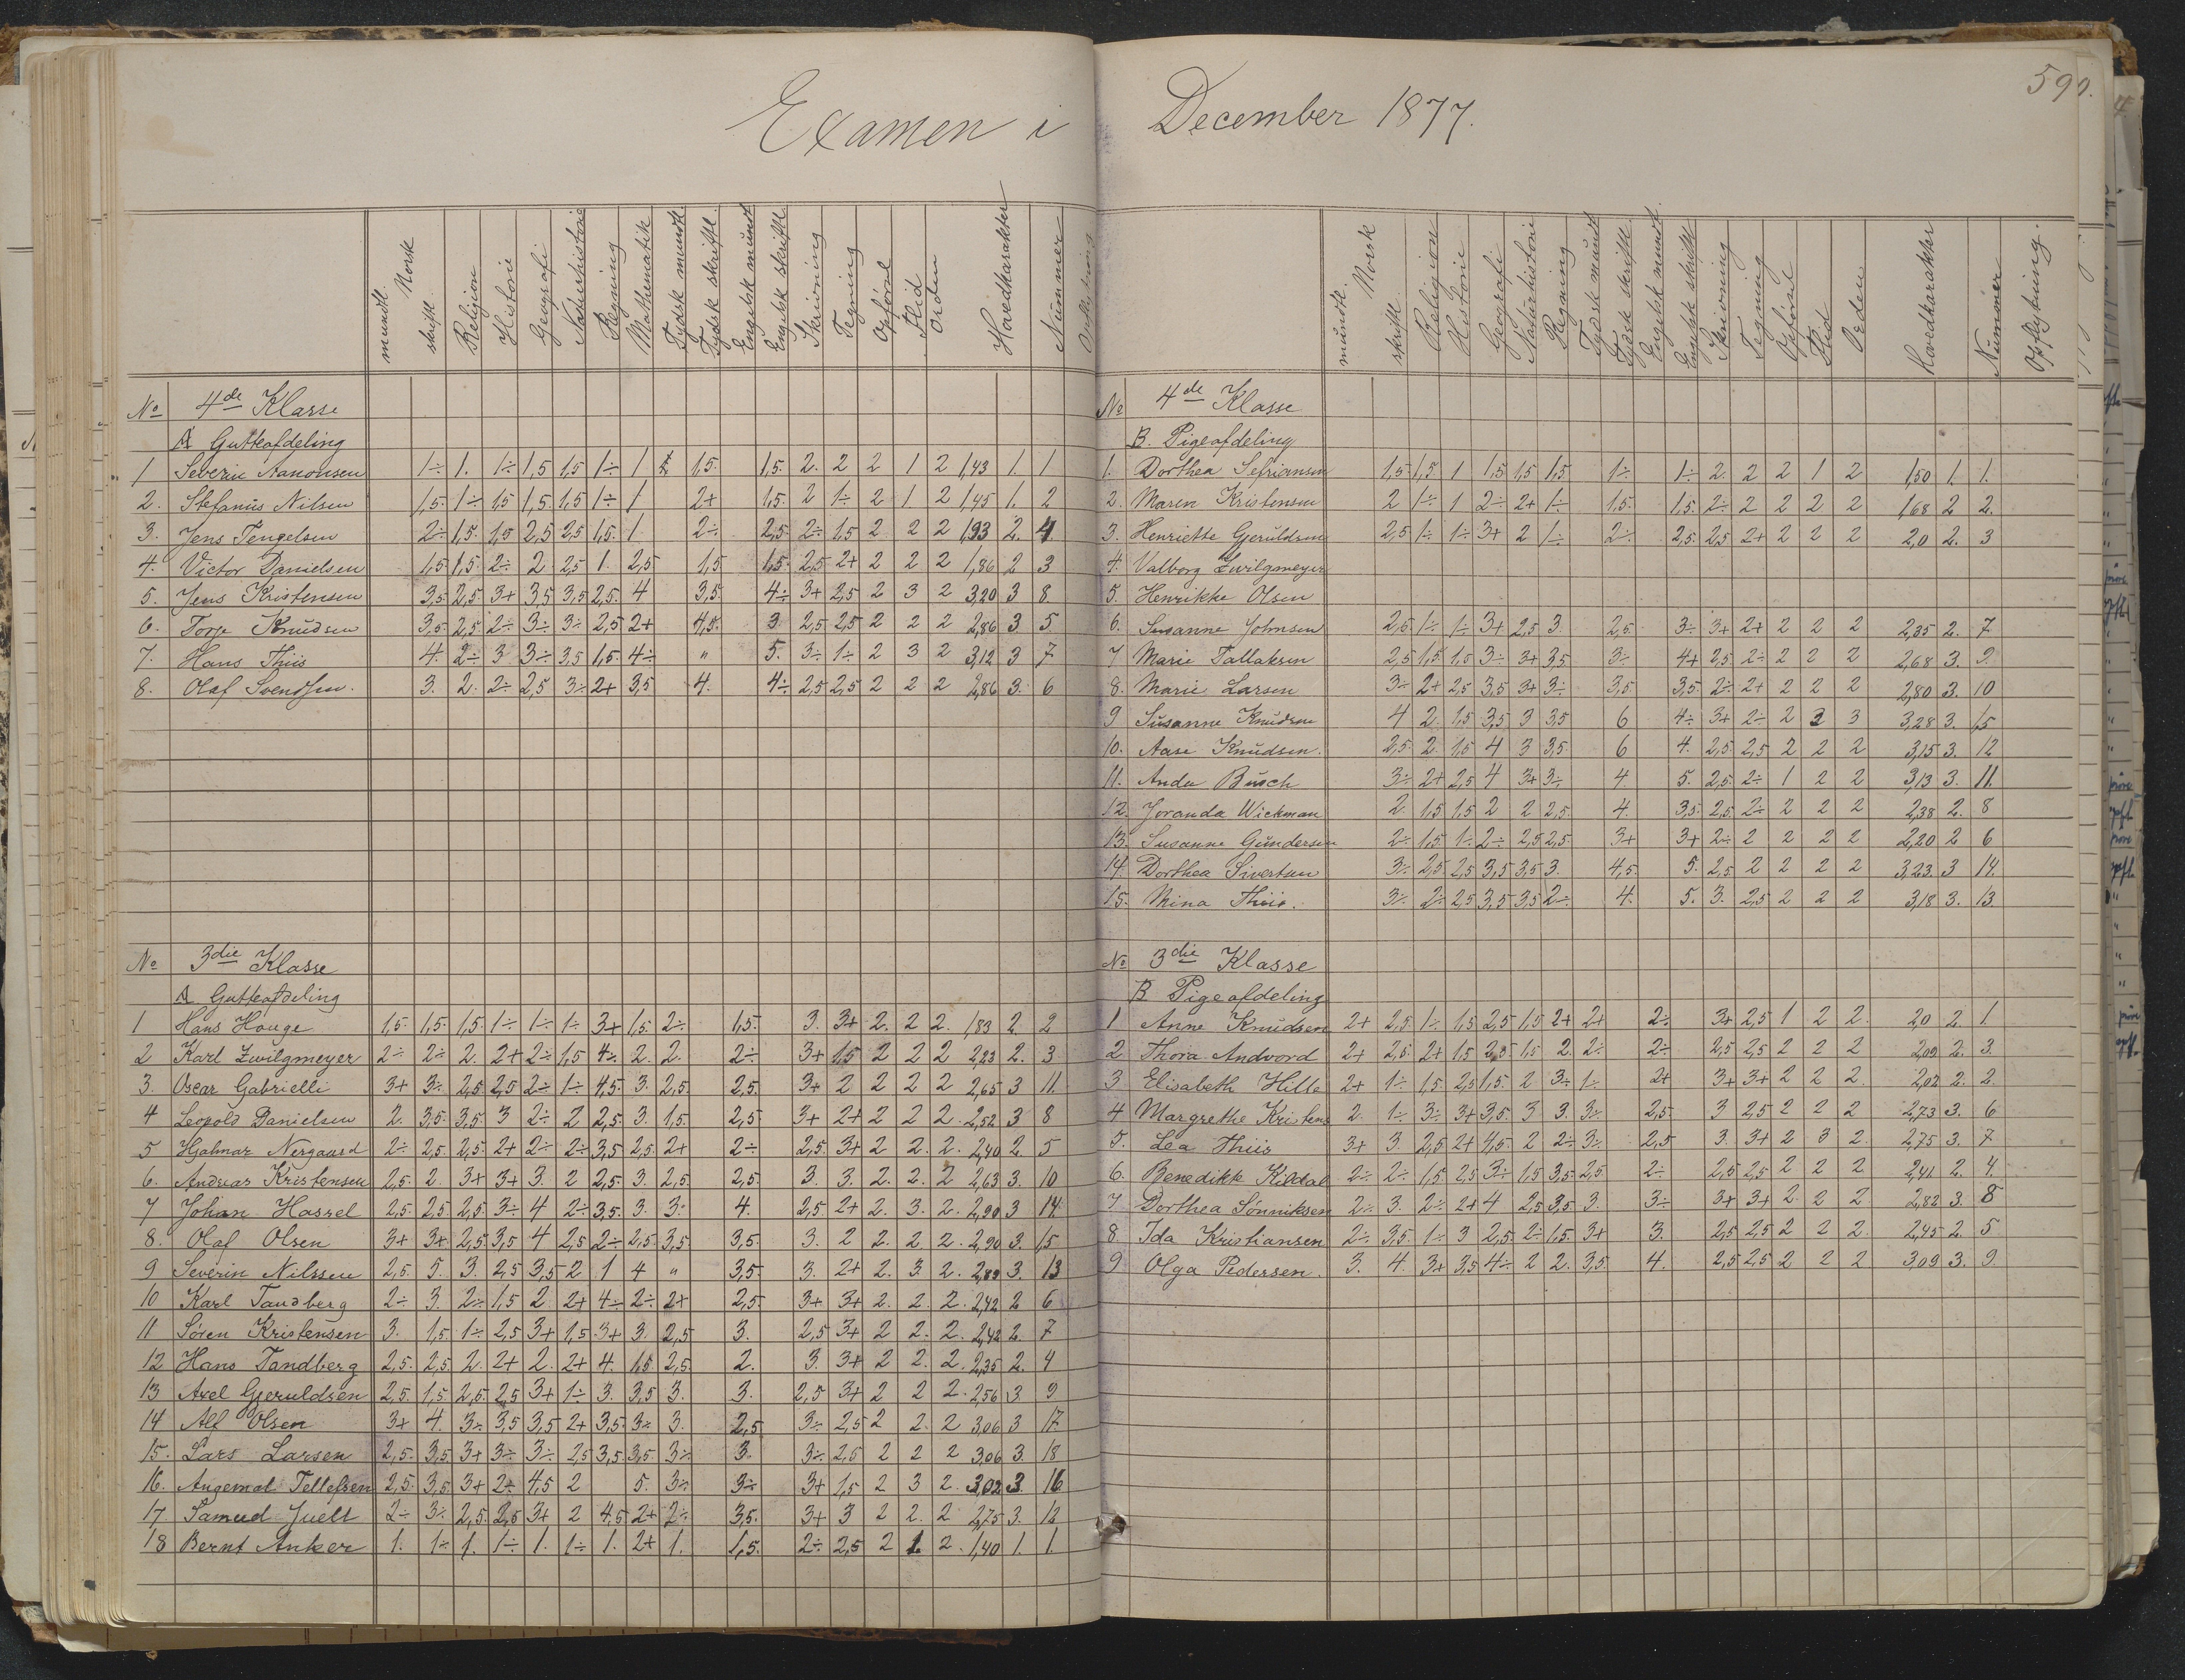 Examen i December 1877.
590.
mundtl. Norsk skriftl. Religion Historie Geografi Naturhistorie Regning Mathematik Tydsk mundtl. Tydsk skriftl. Engelsk mundtl Engelsk skriftl. Skrivning Tegning Opførsel Flid Orden Hovedkarakter Nummer
No 4de Klasse
A Gutteafdeling
1 Severin Aanonsen 1÷ 1. 1÷ 1,5 1,5 1÷ 1 1,5. 1,5. 2. 2 2 1 2 1,43 1. 1
2. Stefanus Nilsen 1,5. 1÷ 1,5 1,5. 1,5 1÷ 1 2+ 1,5. 2 1÷ 2 1. 2 1,45 1. 2
3. Jens Tengelsen 2÷ 1,5. 1,5 2,5 2,5 1,5. 1. 2÷ 2,5. 2÷ 1,5 2 2 2 1,93 2. 4
4. Victor Danielsen 1,5. 1,5. 2÷ 2 2,5 1. 2,5 1,5 1,5. 2,5 2+ 2 2 2 1,86 2 3
5. Jens Kristensen 3,5 2,5 3+ 3,5 3,5 2,5. 4 3,5. 4÷ 3+ 2,5 2 3 2 3,20 3 8.
6. Torje Knudsen 3,5. 2,5. 2÷ 3÷ 3÷ 2,5 2+ 4,5. 3 2,5 2,5 2 2 2 2,86 3 5
7. Hans Thiis 4. 2÷ 3 3÷ 3,5 1,5. 4÷ " 5. 3÷ 1÷ 2 3 2 3,12 3 7
8. Olaf Svendsen. 3. 2. 2÷ 2,5 3÷ 2+ 3,5 4. 4÷ 2,5 2,5 2 2 2 2,86 3. 6
No 3die Klasse
A Gutteafdeling
1 Hans Houge 1,5. 1,5. 1,5. 1÷ 1÷ 1÷ 3+ 1,5. 2÷ 1,5. 3. 3+ 2. 2 2. 1,83 2. 2
2 Karl Zwilgmeyer 2÷ 2÷ 2. 2+ 2÷ 1,5 4÷ 2. 2. 2÷ 3+ 1,5 2 2 2 2,23 2. 3
3. Oscar Gabrielli 3+ 3÷ 2,5. 2,5 2÷ 1÷ 4,5. 3. 2,5. 2,5. 3+ 2 2 2 2 2,65 3 11.
4 Leopold Danielsen 2. 3,5. 3,5. 3 2÷ 2 2,5. 3. 1,5. 2,5 3+ 2+ 2 2 2. 2,52 3 8
5 Hjalmar Nergaard 2÷ 2,5. 2,5. 2+ 2÷ 2÷ 3,5 2,5. 2+ 2÷ 2,5. 3+ 2 2. 2. 2,40 2. 5
6. Andreas Kristensen 2,5. 2. 3+ 3+ 3. 2 2,5. 3. 2,5. 2,5. 3. 3. 2. 2. 2 2,63 3. 10
7 Johan Hassel 2,5. 2,5 2,5. 3÷ 4 2÷ 3,5. 3. 3÷ 4. 2,5 2+ 2. 3. 2. 2,90 3 14
8. Olaf Olsen 3+ 3+ 2,5. 3,5 4 2,5 2÷ 2,5. 3,5. 3,5. 3. 2 2. 2. 2. 2,90 3. 15
9 Severin Nilssen 2,5. 5. 3. 2,5 3,5 2 1 4 " 3,5. 3. 2+ 2. 3. 2. 2,89 3. 13
10 Karl Tandberg 2÷ 3. 2÷ 1,5 2 2+ 4÷ 2÷ 2+ 2,5. 3+ 3+ 2. 2. 2. 2,42 2 6
11 Søren Kristensen 3. 1,5 1÷ 2,5 3+ 1,5 3+ 3. 2,5 3. 2,5 3+ 2 2. 2. 2,42 2. 7
12 Hans Tandberg 2,5. 2,5 2. 2+ 2. 2+ 4. 1,5 2,5. 2. 3. 3+ 2 2. 2. 2,35 2. 4
13 Axel Gjeruldsen 2,5. 1,5 2,5. 2,5 3+ 1÷ 3. 3,5 3. 3. 2,5 3+ 2 2 2. 2,56 3 9
14 Alf Olsen 3+ 4. 3÷ 3,5 3,5 2+ 3,5. 3÷ 3. 2,5 3÷ 2,5 2 2. 2 3,06 3 17.
15. Lars Larsen 2,5. 3,5. 3+ 3÷ 3÷ 2,5 3,5. 3,5 3÷ 3. 3÷ 2,5 2 2 2 3,06 3. 18
16. Angemal Tellefsen 2,5. 3,5. 3+ 2÷ 4,5 2 5. 3÷ 3÷ 3+ 1,5 2 3 2. 3,02 3. 16
17, Samuel Juell 2÷ 3÷ 2,5. 2,5 3+ 2 4,5 2+ 2÷ 3,5. 3+ 3 2 2. 2 2,75 3. 12
18 Bernt Anker 1. 1÷ 1. 1÷ 1. 1÷ 1. 2+ 1. 1,5. 2÷ 2,5 2 1. 2. 1,40 1. 1.
mundtl. Norsk skriftl. Religion Historie Geografi Naturhistorie Regning Tydsk mundtl Tydsk skriftl. Engelsk mundtl. Engelsk skriftl Skrivning Tegning Opførsel Flid Orden Hovedkarakter Nummer Opflytning.
No 4de Klasse
B. Pigeafdeling
1. Dorthea Sefriansen 1,5 1,5 1 1,5 1,5 1,5 1÷ 1÷ 2. 2 2 1 2 1,50 1. 1.
2. Maren Kristensen 2 1÷ 1 2÷ 2+ 1÷ 1,5. 1,5. 2÷ 2 2 2 2 1,68 2 2.
3. Henriette Geruldsen 2,5 1÷ 1÷ 3+ 2 1÷ 2÷ 2,5. 2,5 2+ 2 2 2 2,0 2. 3
4. Valborg Zwilgmeyer
5. Henrikke Olsen
6. Susanne Johnsen 2,5 1÷ 1÷ 3+ 2,5 3. 2,5. 3÷ 3+ 2+ 2 2 2 2,35 2. 7.
7 Marie Tallaksen 2,5 1,5 1,5 3÷ 3+ 3,5 3÷ 4+ 2,5. 2÷ 2 2 2 2,68 3. 9.
8. Marie Larsen 3÷ 2+ 2,5 3,5 3+ 3÷ 3,5. 3,5. 2÷ 2+ 2 2 2 2,80 3. 10
9 Susanne Knudsen 4 2. 1,5 3,5 3 3,5 6 4÷ 3+ 2÷ 2 3 3 3,28 3. 15
10. Aase Knudsen. 2,5. 2. 1,5 4 3 3,5. 6 4. 2,5. 2,5 2 2 2 3,15 3. 12
11. Anda Busch 3÷ 2+ 2,5 4 3+ 3÷ 4. 5. 2,5. 2÷ 1 2 2 3,13 3. 11.
12. Joranda Wickman 2. 1,5 1,5 2 2 2,5. 4. 3,5. 2,5. 2÷ 2 2 2 2,38 2. 8
13. Susanne Gundersen 2÷ 1,5. 1÷ 2÷ 2,5 2,5. 3+ 3+ 2÷ 2 2 2 2 2,20 2 6
14. Dorthea Sivertsen 3÷ 2,5. 2,5 3,5 3,5 3. 4,5. 5. 2,5 2 2 2 2 3,23. 3 14.
15. Mina Thiis. 3÷ 2÷ 2,5 3,5 3,5 2÷ 4. 5. 3. 2,5 2 2 2 3,18 3. 13.
No 3die Klasse
B Pigeafdeling
1 Anne Knudsen 2+ 2,5. 1÷ 1,5 2,5 1,5 2+ 2+ 2÷ 3+ 2,5 1 2 2. 2,0 2. 1.
2 Thora Andvord 2+ 2,5. 2+ 1,5 3,5 1,5 2. 2÷ 2÷ 2,5 2,5 2 2 2 2,09 2. 3.
3 Elisabeth Hille 2+ 1÷ 1,5 2,5 1,5. 2 3÷ 1÷ 2+ 3+ 3+ 2 2 2. 2,02 2. 2.
4 Margrethe Kristens 2. 1÷ 3÷ 3+ 3,5. 3 3. 3÷ 2,5. 3 2,5 2 2 2 2,73 3. 6
5. Lea Thiis 3+ 3. 2,5 2+ 4,5 2 2÷ 3÷ 2,5 3. 3+ 2 3 2. 2,75 3. 7
6. Benedikke Kildal 2÷ 2÷ 1,5 2,5 3÷ 1,5 3,5 2,5 2÷ 2,5 2,5 2 2 2 2,41 2. 4
7 Dorthea Sønniksen 2÷ 3. 2÷ 2+ 4 2,5 3,5 3. 3÷ 3+ 3+ 2. 2 2 2,82 3. 8
8. Ida Kristiansen 2÷ 3,5. 1÷ 3 2,5 2÷ 1,5. 3+ 3. 2,5 2,5 2 2 2. 2,45 2. 5
9 Olga Pedersen. 3. 4. 3+ 3,5 4÷ 2 2. 3,5. 4. 2,5 2,5 2 2 2 3,09 3. 9.